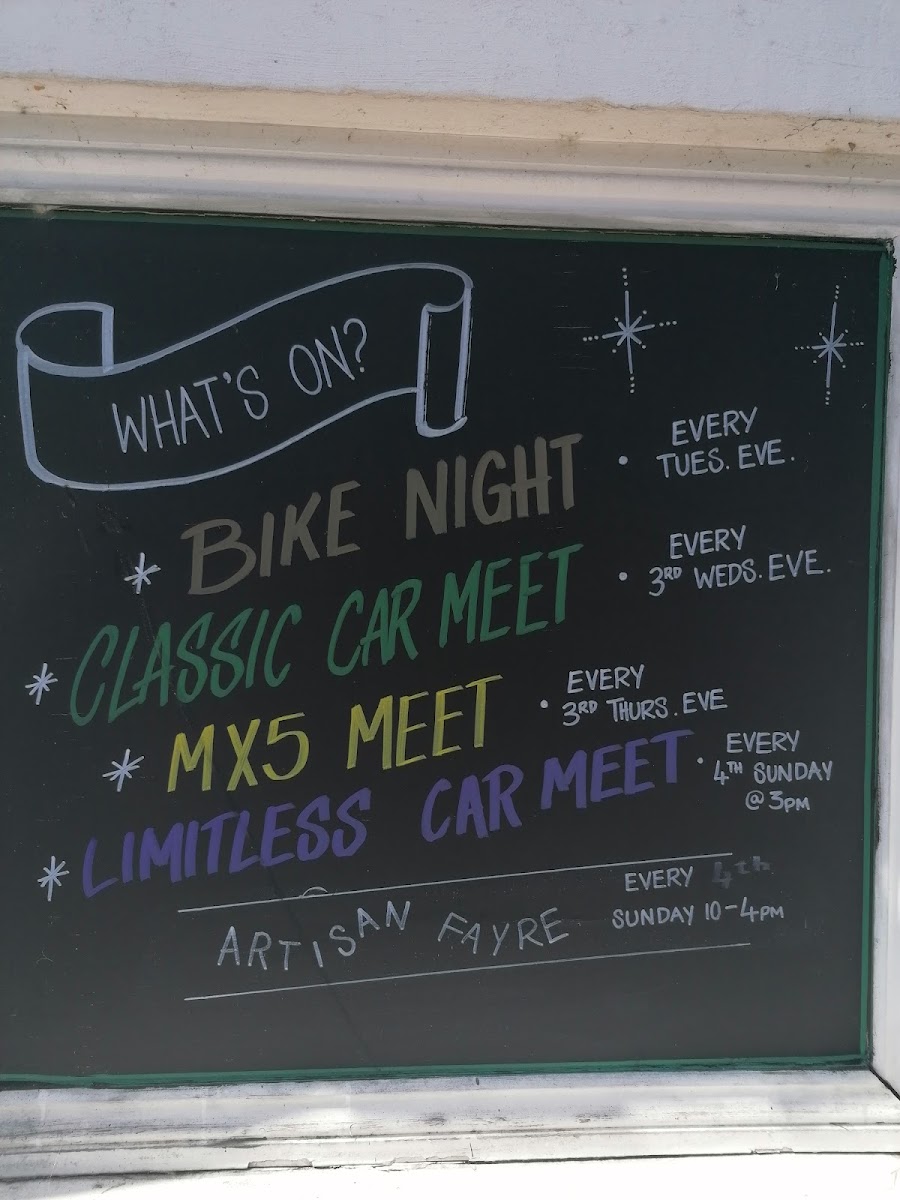 WHAT'S ON?
BIKE NIGHT
EVERY
TUES. EVE.
CLASSIC CAR MEET
EVERY
3RD WEDS. EVE.
MX5 MEET
EVERY
3RD THURS. EVE
LIMITLESS CAR MEET
EVERY
4TH SUNDAY
@ 3PM
ARTISAN FAYRE
EVERY 4th
SUNDAY 10-4PM